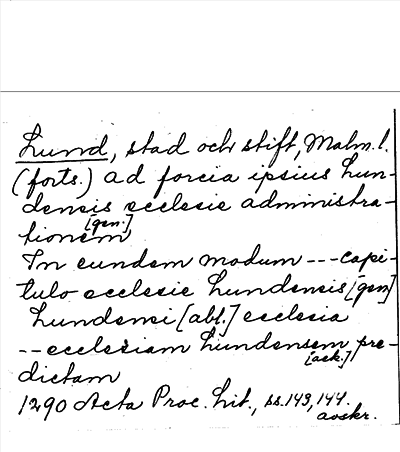 Lund, stad och stift, Malm. l.
(forts.) ad forcia ipsius Lun-
densis ecclesie administra-
tionem [gen.]
In eundem modum --- capi-
tulo ecclesie Lundensis [gen]
Lundensi [abl.] ecclesia
-- ecclesiam Lundensem pre-
[ack.]
dictam
1290 Acta Proc. Lit., ss. 143, 144.
avskr.